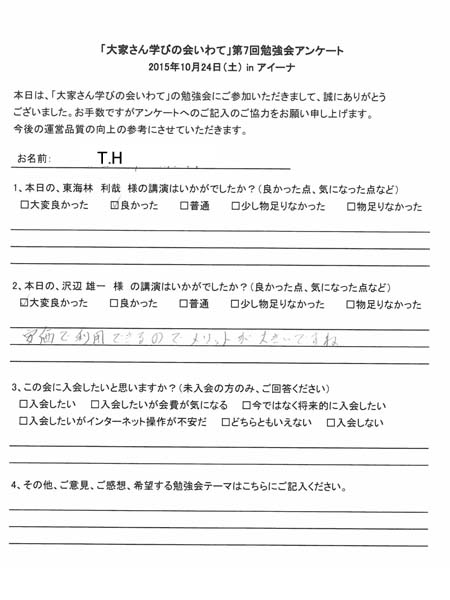 「大家さん学びの会いわて」第7回勉強会アンケート
2015年10月24日(土) in アイーナ
本日は、「大家さん学びの会いわて」の勉強会にご参加いただきまして、誠にありがとう
ございました。お手数ですがアンケートへのご記入のご協力をお願い申し上げます。
今後の運営品質の向上の参考にさせていただきます。
お名前: T.H
1、本日の、東海林 利哉 様の講演はいかがでしたか?(良かった点、気になった点など)
□大変良かった ☑良かった □普通 □少し物足りなかった □物足りなかった
2、本日の、沢辺 雄一 様 の講演はいかがでしたか?(良かった点、気になった点など)
☑大変良かった □良かった □普通 □少し物足りなかった □物足りなかった
安価で利用できるのでメリットが大きいですね
3、この会に入会したいと思いますか?(未入会の方のみ、ご回答ください)
□入会したい □入会したいが会費が気になる □今ではなく将来的に入会したい
□入会したいがインターネット操作が不安だ □どちらともいえない □入会しない
4、その他、ご意見、ご感想、希望する勉強会テーマはこちらにご記入ください。